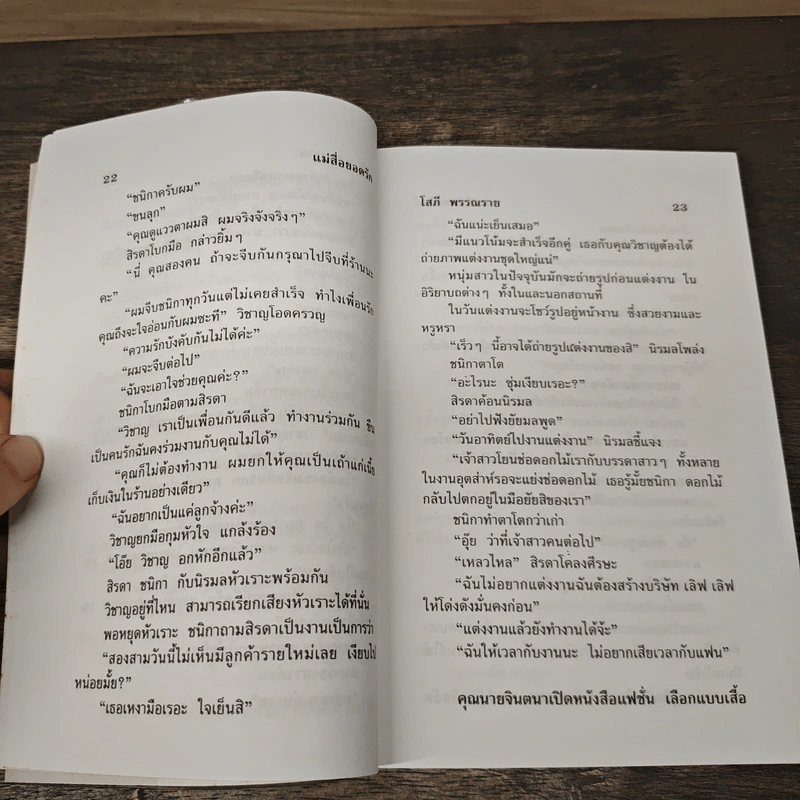 22
แม่สื่อยอดรัก
“ชนิกาครับผม”
“ขนลุก”
“คุณดูแววตาผมสิ ผมจริงจังจริงๆ”
สิรดาโบกมือ กล่าวยิ้มๆ
“นี่ คุณสองคน ถ้าจะจีบกันกรุณาไปจีบที่ร้านนะ
คะ”
“ผมจีบชนิกาทุกวันแต่ไม่เคยสำเร็จ ทำไงเพื่อนรัก
คุณถึงจะใจอ่อนกับผมซะที” วิชาญโอดครวญ
“ความรักบังคับกันไม่ได้ค่ะ”
“ผมจะจีบต่อไป”
“ฉันจะเอาใจช่วยคุณค่ะ?”
ชนิกาโบกมือตามสิรดา
“วิชาญ เราเป็นเพื่อนกันดีแล้ว ทำงานร่วมกัน ขืน
เป็นคนรักฉันคงร่วมงานกับคุณไม่ได้”
“คุณก็ไม่ต้องทำงาน ผมยกให้คุณเป็นเถ้าแก่เนี้ย
เก็บเงินในร้านอย่างเดียว”
“ฉันอยากเป็นแค่ลูกจ้างค่ะ”
วิชาญยกมือกุมหัวใจ แกล้งร้อง
“โอ๊ย วิชาญ อกหักอีกแล้ว”
สิรดา ชนิกา กับนิรมลหัวเราะพร้อมกัน
วิชาญอยู่ที่ไหน สามารถเรียกเสียงหัวเราะได้ที่นั่น
พอหยุดหัวเราะ ชนิกาถามสิรดาเป็นงานเป็นการว่า
“สองสามวันนี้ไม่เห็นมีลูกค้ารายใหม่เลย เงียบไป
หน่อยมั้ย?”
“เธอเหงามือเรอะ ใจเย็นสิ”
โสภี พรรณราย
23
“ฉันน่ะเย็นเสมอ”
“มีแนวโน้มจะสำเร็จอีกคู่ เธอกับคุณวิชาญต้องได้
ถ่ายภาพแต่งงานชุดใหญ่แน่”
หนุ่มสาวในปัจจุบันมักจะถ่ายรูปก่อนแต่งงาน ใน
อิริยาบถต่างๆ ทั้งในและนอกสถานที่
ในวันแต่งงานจะโชว์รูปอยู่หน้างาน ซึ่งสวยงามและ
หรูหรา
“เร็วๆ นี้อาจได้ถ่ายรูปแต่งงานของสิ” นิรมลโพล่ง
ชนิกาตาโต
“อะไรนะ ซุ่มเงียบเรอะ?”
สิรดาค้อนนิรมล
“อย่าไปฟังยัยมลพูด”
“วันอาทิตย์ไปงานแต่งงาน” นิรมลชี้แจง
“เจ้าสาวโยนช่อดอกไม้เรากับบรรดาสาวๆ ทั้งหลาย
ในงานอุตส่าห์รอจะแย่งช่อดอกไม้ เธอรู้มั้ยชนิกา ดอกไม้
กลับไปตกอยู่ในมือยัยสิของเรา”
ชนิกาทำตาโตกว่าเก่า
“อุ๊ย ว่าที่เจ้าสาวคนต่อไป”
“เหลวไหล” สิรดาโคลงศีรษะ
“ฉันไม่อยากแต่งงานฉันต้องสร้างบริษัท เลิฟ เลิฟ
ให้โด่งดังมั่นคงก่อน”
“แต่งงานแล้วยังทำงานได้จ้ะ”
“ฉันให้เวลากับงานนะ ไม่อยากเสียเวลากับแฟน”
คุณนายจินตนาเปิดหนังสือแฟชั่น เลือกแบบเสื้อ